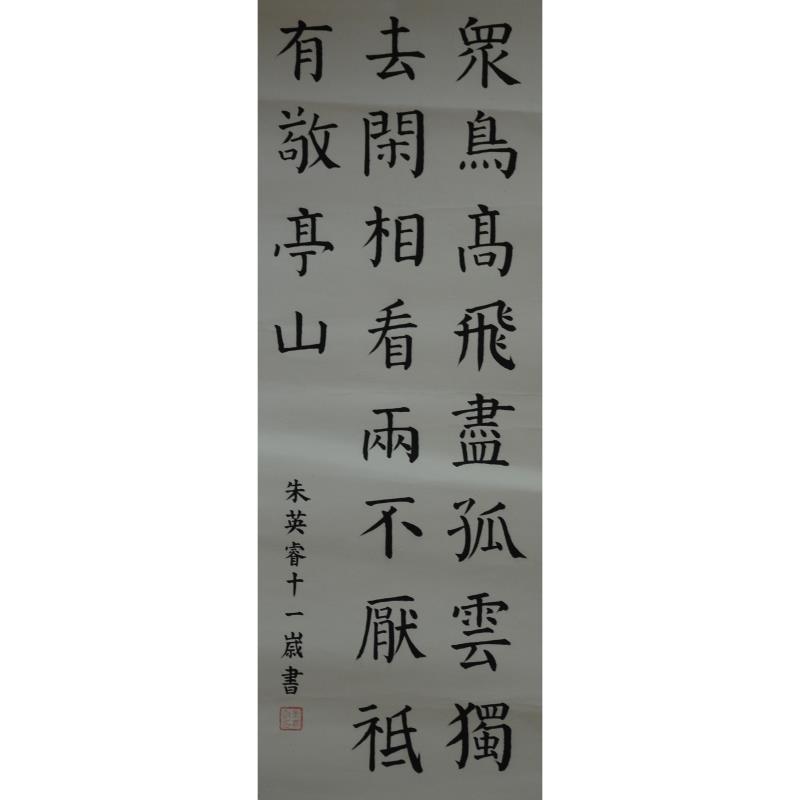 眾鳥髙飛盡孤雲獨
去閑相看兩不厭祗
有敬亭山
朱英睿十一歲書